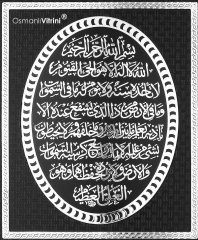 OsmanlıVitrini®
بسم الله الرحمن الرحيم
الله لا اله الا هو الحي القيوم
لا تاخذه سنة ولا نوم له ما في السموات
وما في الارض من ذا الذي يشفع عنده الا
باذنه يعلم ما بين ايديهم وما خلفهم ولا يحيطون
بشيء من علمه الا بما شاء وسع كرسيه السموات
والارض ولا يؤده حفظهما وهو
العلي العظيم